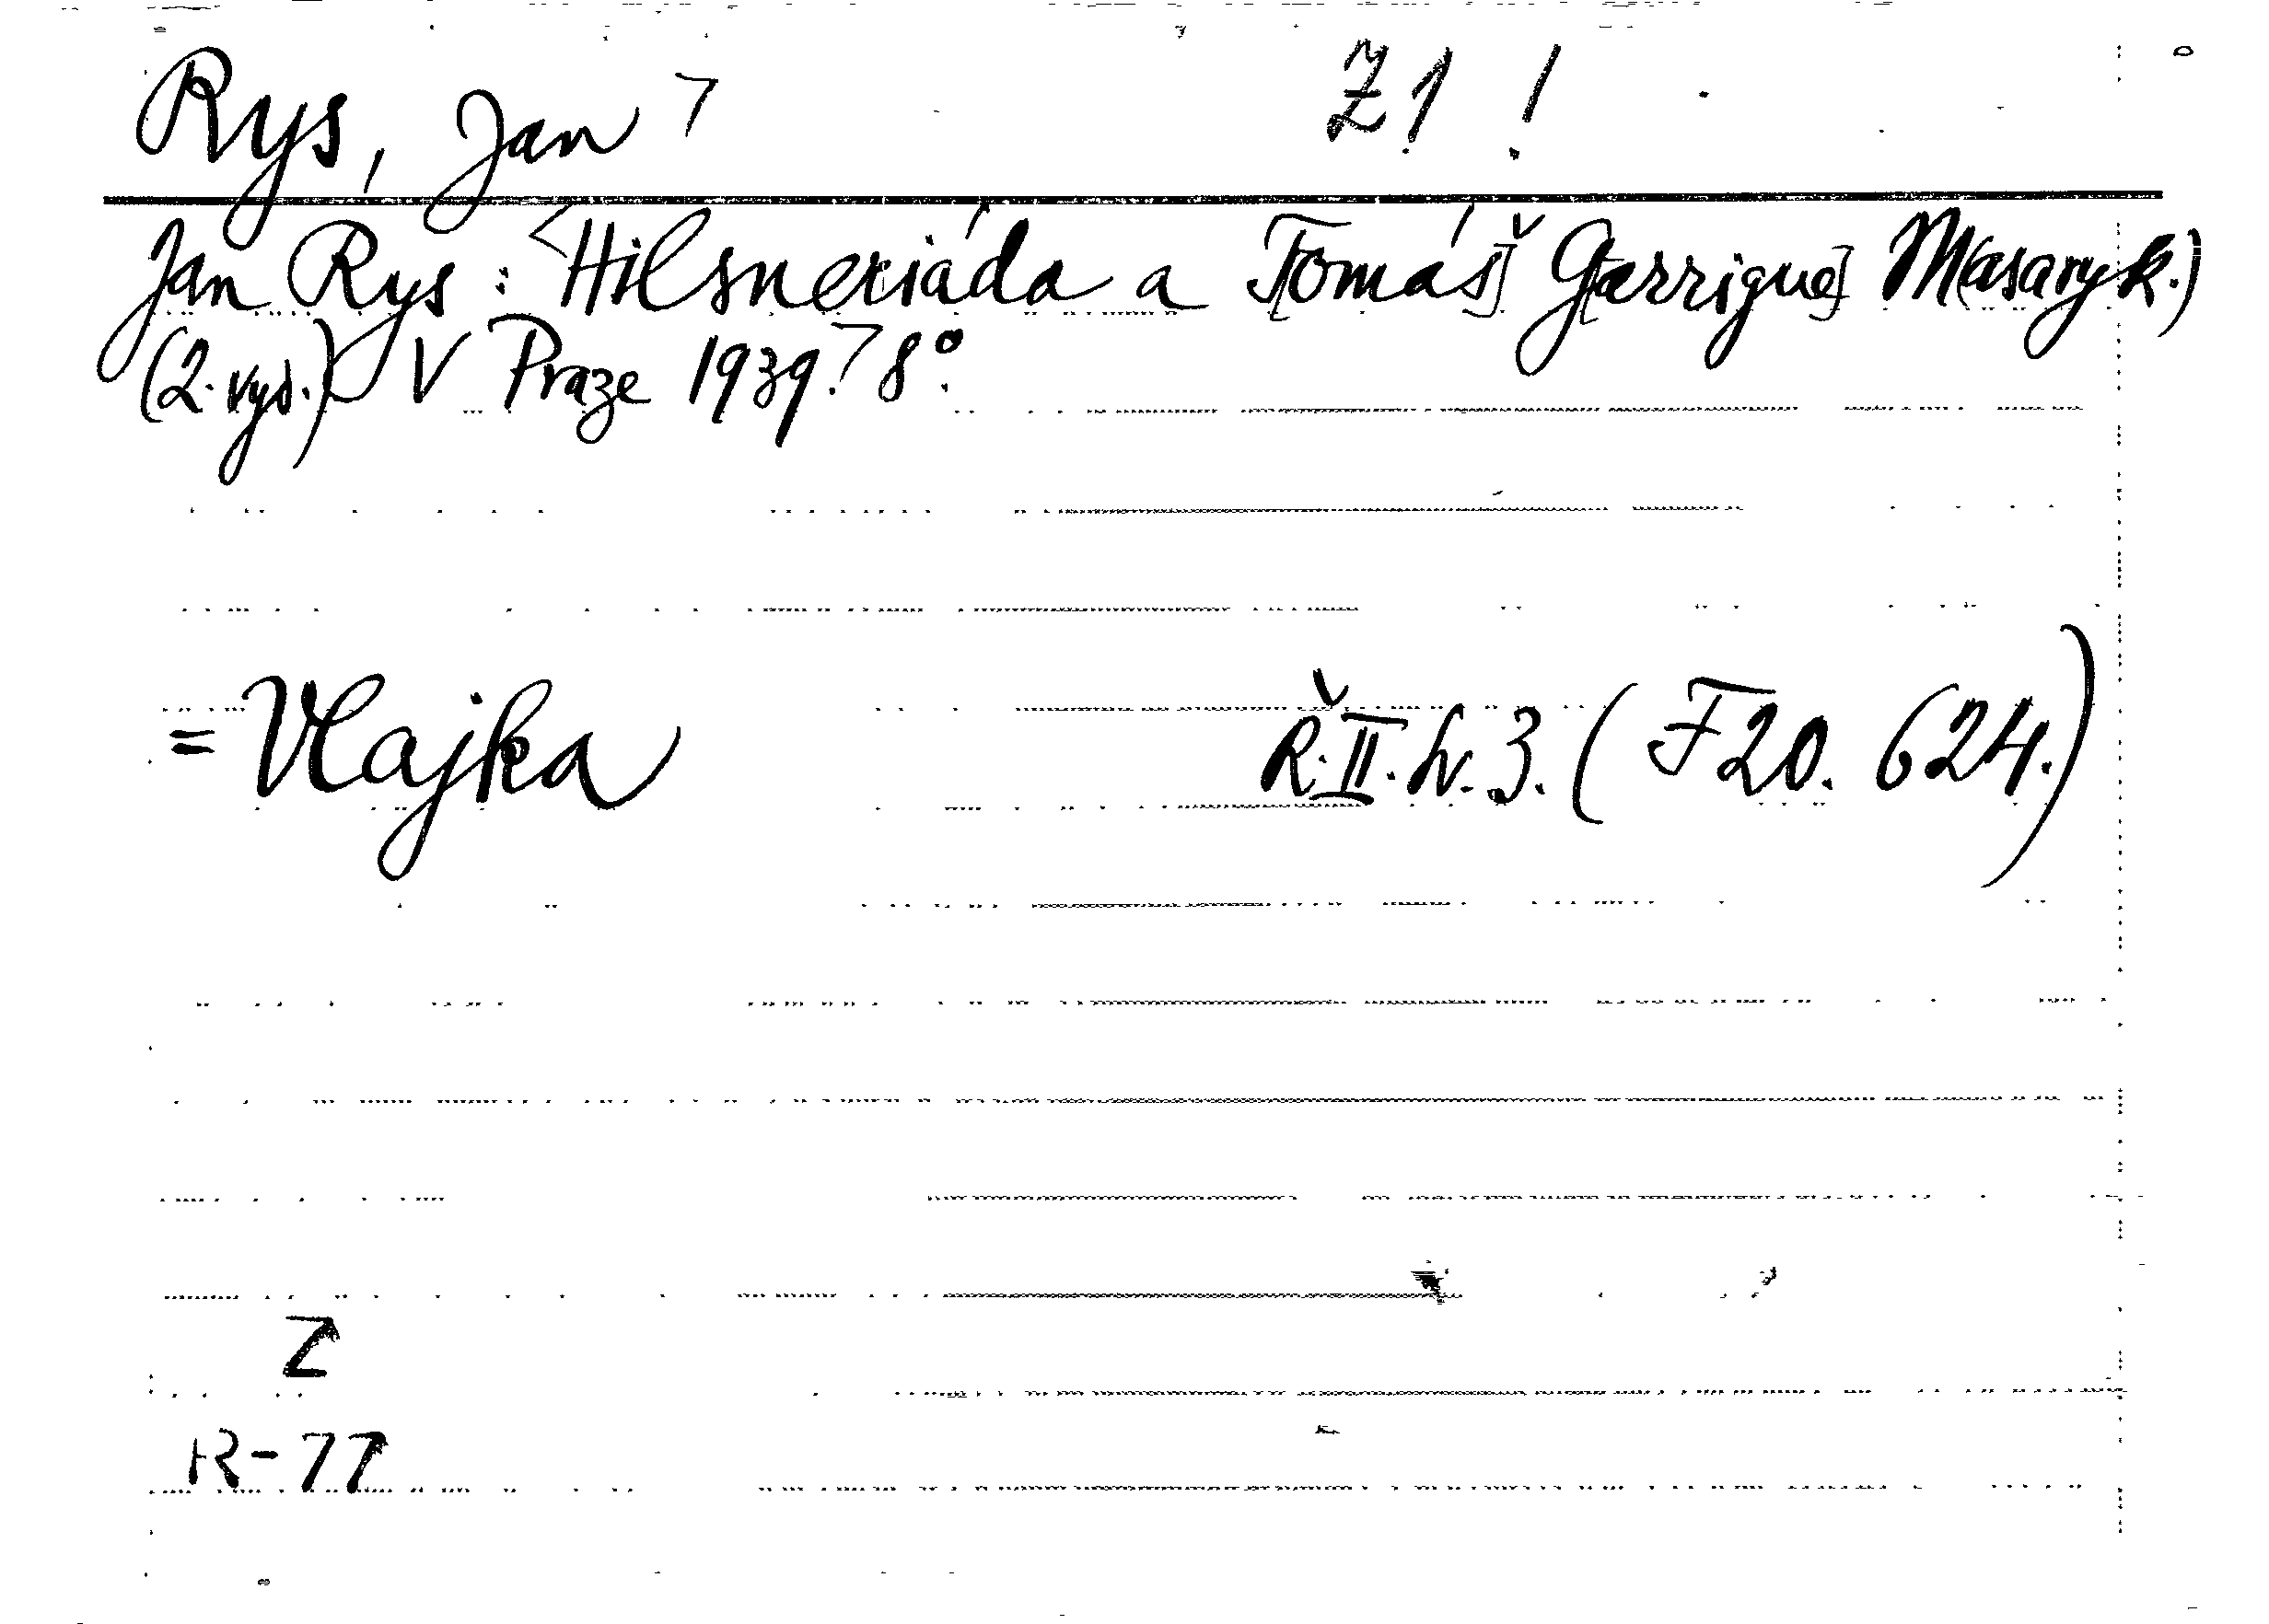 Rys, Jan Z 1 !
Jan Rys: Hilsneriáda a T[omáš] G[arrigue] Masaryk.)
(2. vyd.) V Praze 1939. 8°.
= Vlajka Ř. II. sv. 3. (F 20. 624.)
Z
R-77